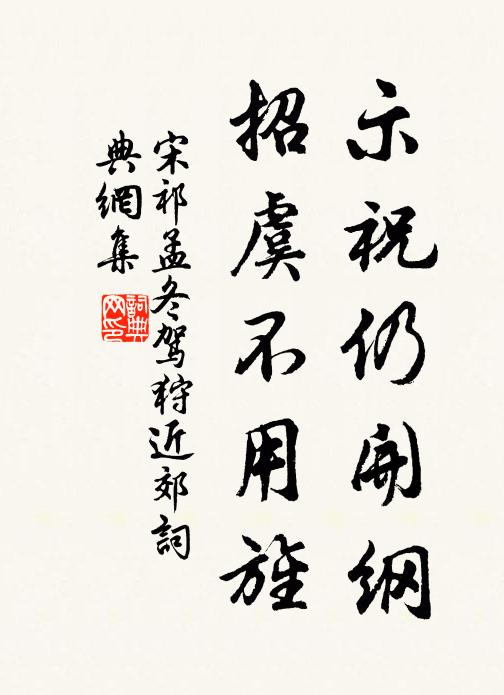 示祝仍開網
招虞不用旌
宋祁孟冬駕狩近郊詞
典網集
詞典網印